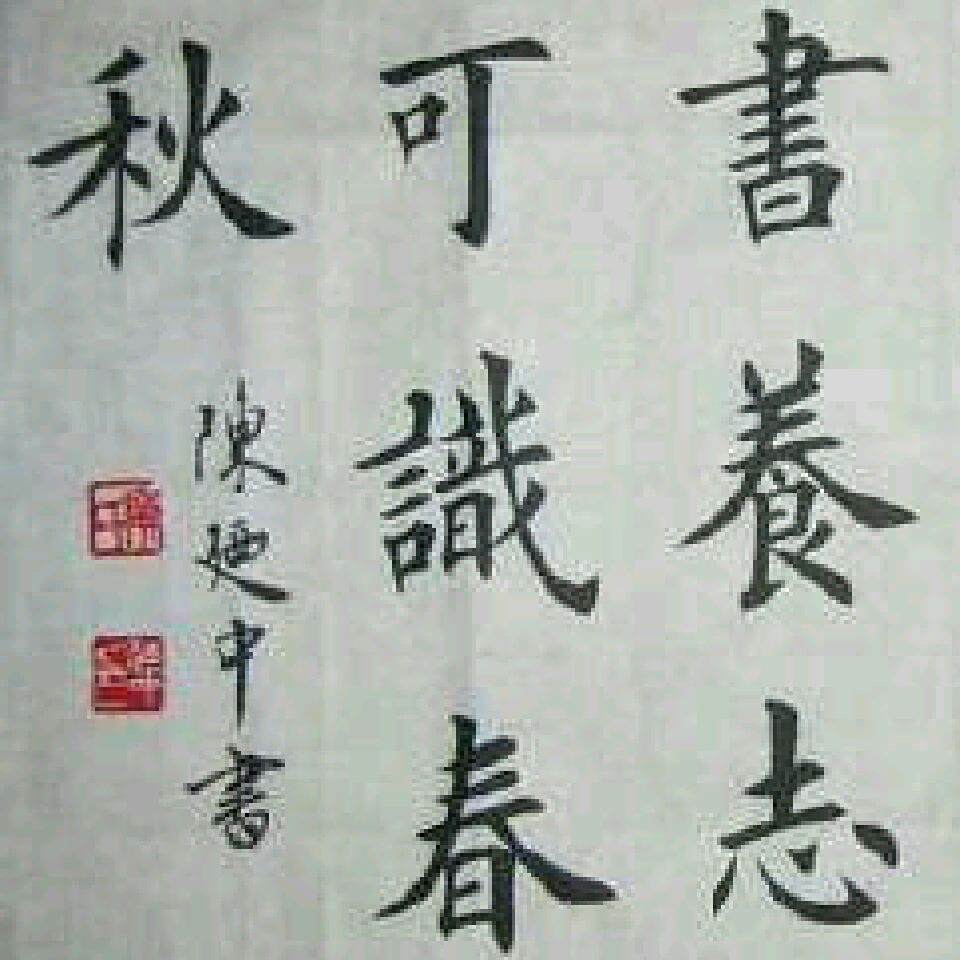 書養志
可識春
秋
陳廼申書